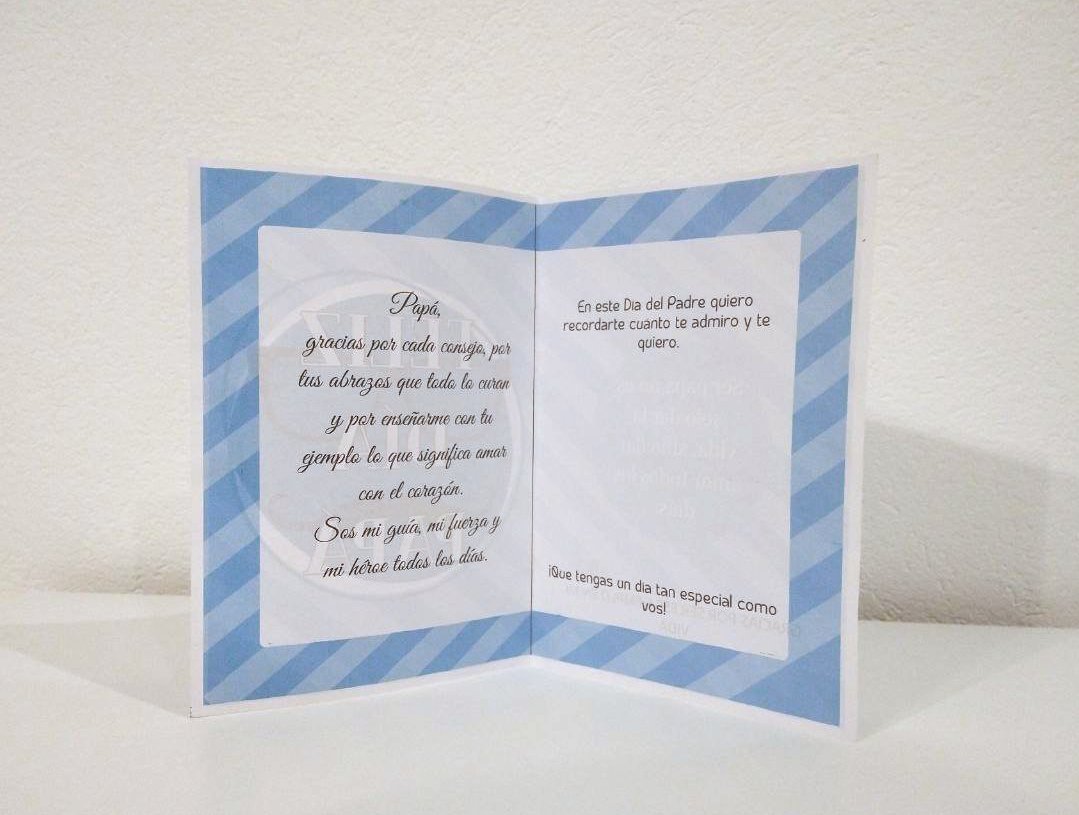 Papá,
gracias por cada consejo, por
tus abrazos que todo lo curan
y por enseñarme con tu
ejemplo lo que significa amar
con el corazón.
Sos mi guía, mi fuerza y
mi héroe todos los días.
En este Dia del Padre quiero
recordarte cuanto te admiro y te
quiero.
¡Que tengas un dia tan especial como
vos!
FELIZ
DÍA
PAPÁ
GRACIAS POR
VIDA